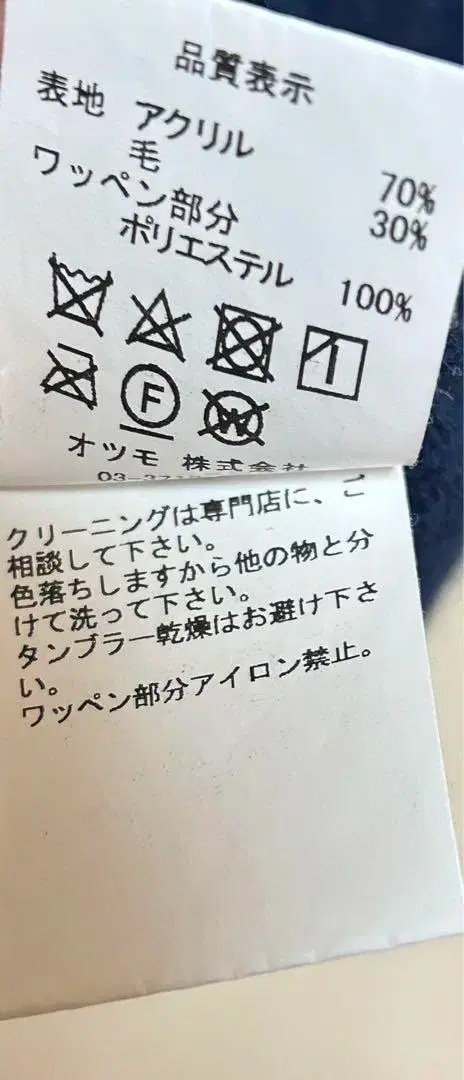 品質表示
表地 アクリル 70%
毛 30%
ワッペン部分
ポリエステル 100%
F
W
オツモ 株式会社
クリーニングは専門店に、ご
相談して下さい。
色落ちしますから他の物と分
けて洗って下さい。
タンブラー乾燥はお避け下さ
い。
ワッペン部分アイロン禁止。